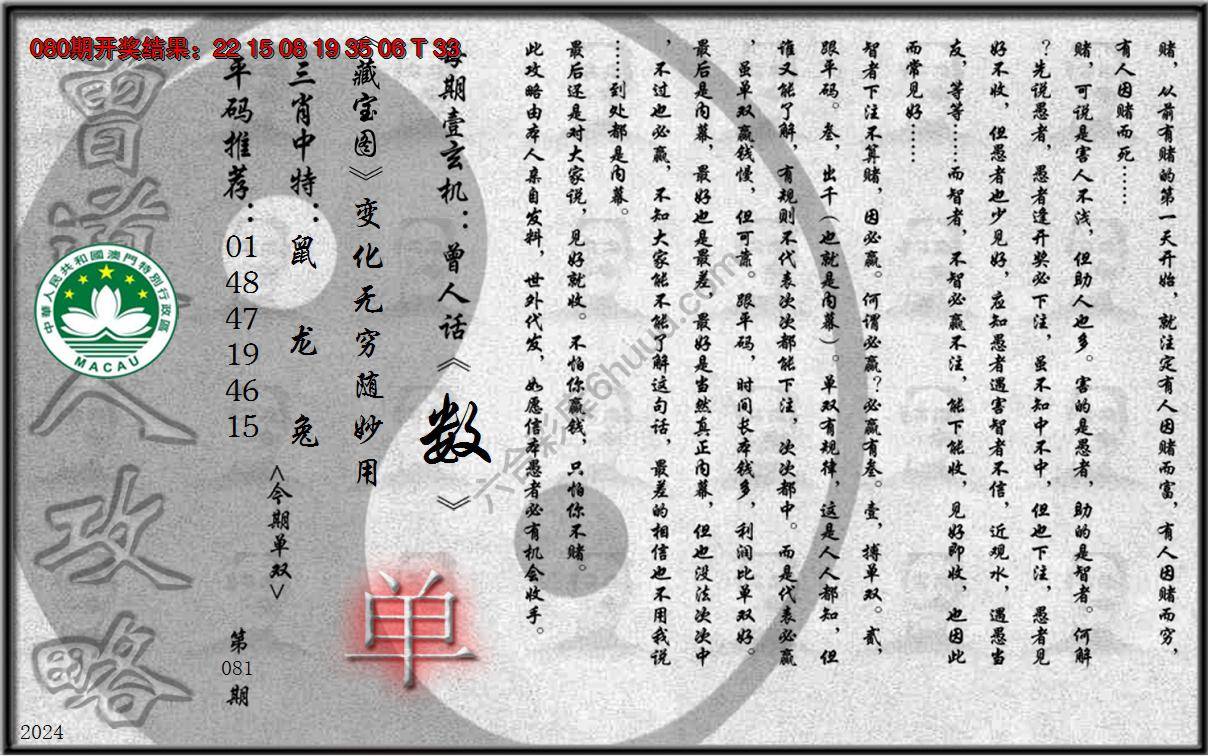 080期开奖结果：22 15 08 19 35 06 T 33
赌，从前有赌的第一天开始，就注定有人因赌而富，有人因赌而穷，
有人因赌而死……
赌，可说是害人不浅，但助人也多。害的是愚者，助的是智者。何解
？先说愚者，愚者逢开奖必下注，虽不知中不中，但也下注，愚者见
好不收，但愚者也少见好，应知愚者遇害智者不信，近观水，遇愚当
友，等等……而智者，不智必赢不注，能下能收，见好即收，也因此
而常见好……
智者下注不算赌，因必赢。何谓必赢？必赢有叁。壹，搏单双。贰，
跟平码。叁，出千（也就是内幕）。单双有规律，这是人人都知，但
谁又能了解，有规则不代表次次都能下注，次次都中。而是代表必赢
，虽单双赢钱慢，但可靠。跟平码，时间长本钱多，利润比单双好。
最后是内幕，最好也是最差，最好是当然真正内幕，但也没法次次中
，不过也必赢，不知大家能不能了解这句话，最差的相信也不用我说
……到处都是内幕。
最后还是对大家说，见好就收。不怕你赢钱，只怕你不赌。
此攻略由本人亲自发料，世外代发，如愿信本愚者必有机会收手。
每期壹玄机：曾人话《数》
《藏宝图》变化无穷随妙用
单
三肖中特：鼠 龙 兔
<今期单双>
平码推荐：01 48 47 19 46 15
第081期
曾道人攻略
中華人民共和國澳門特別行政區
MACAU
2024
六合彩库6huu.com